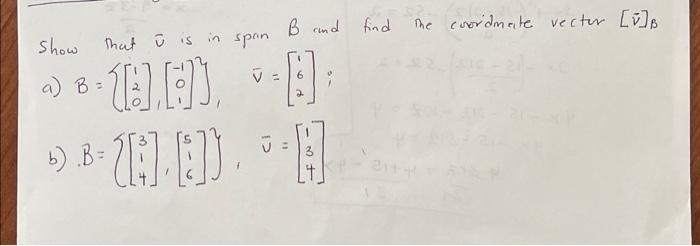 Show that v̄ is in span B and find the cooridnate vector [v̄]B
a) B = {[1 2 0], [-1 0 1]}, v̄ = [1 6 2];
b) B = {[3 1 4], [5 1 6]}, v̄ = [1 3 4]